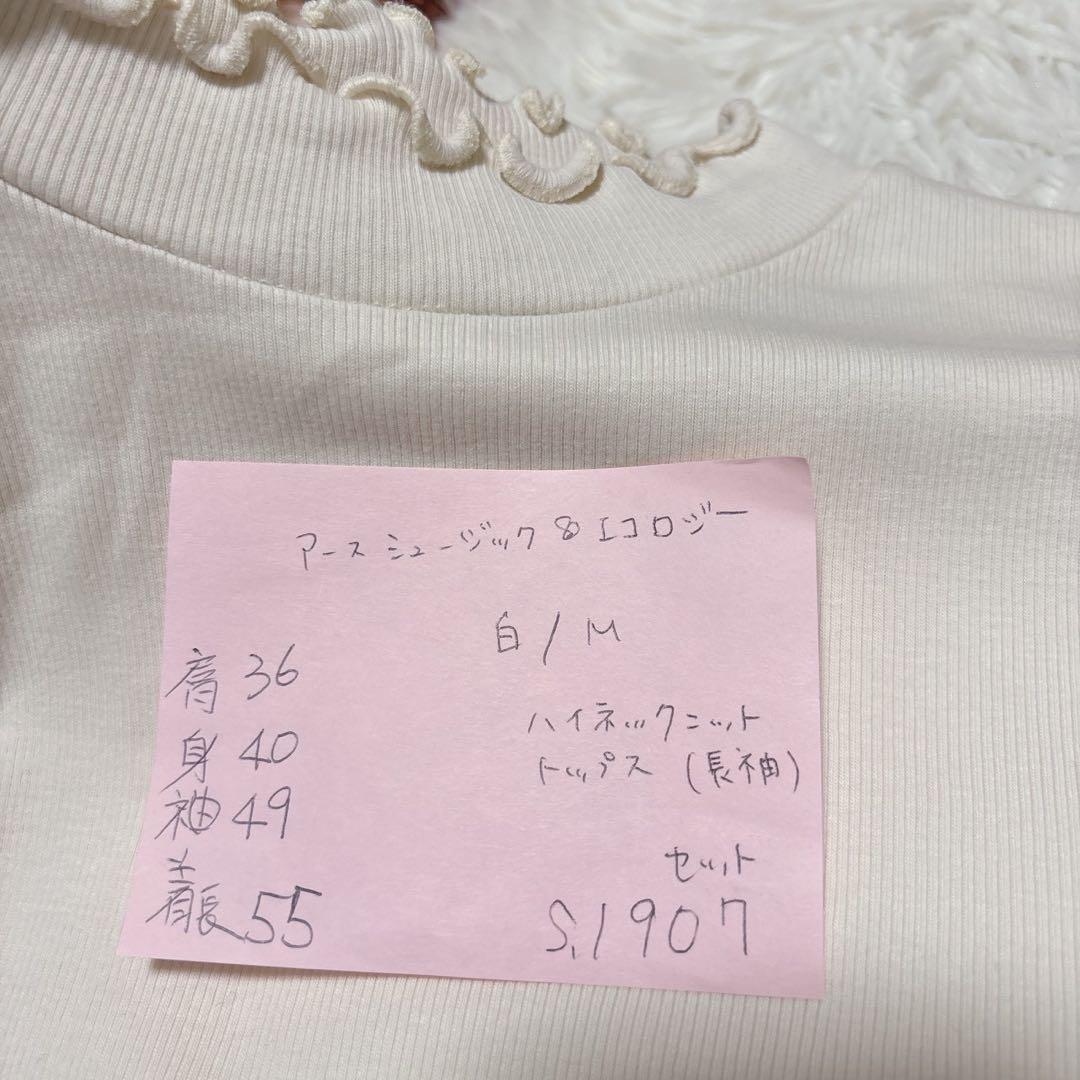 アースミュージック&エコロジー
白/M
肩36
身40
袖49
着長55
ハイネックニット
トップス(長袖)
セット
S,1907